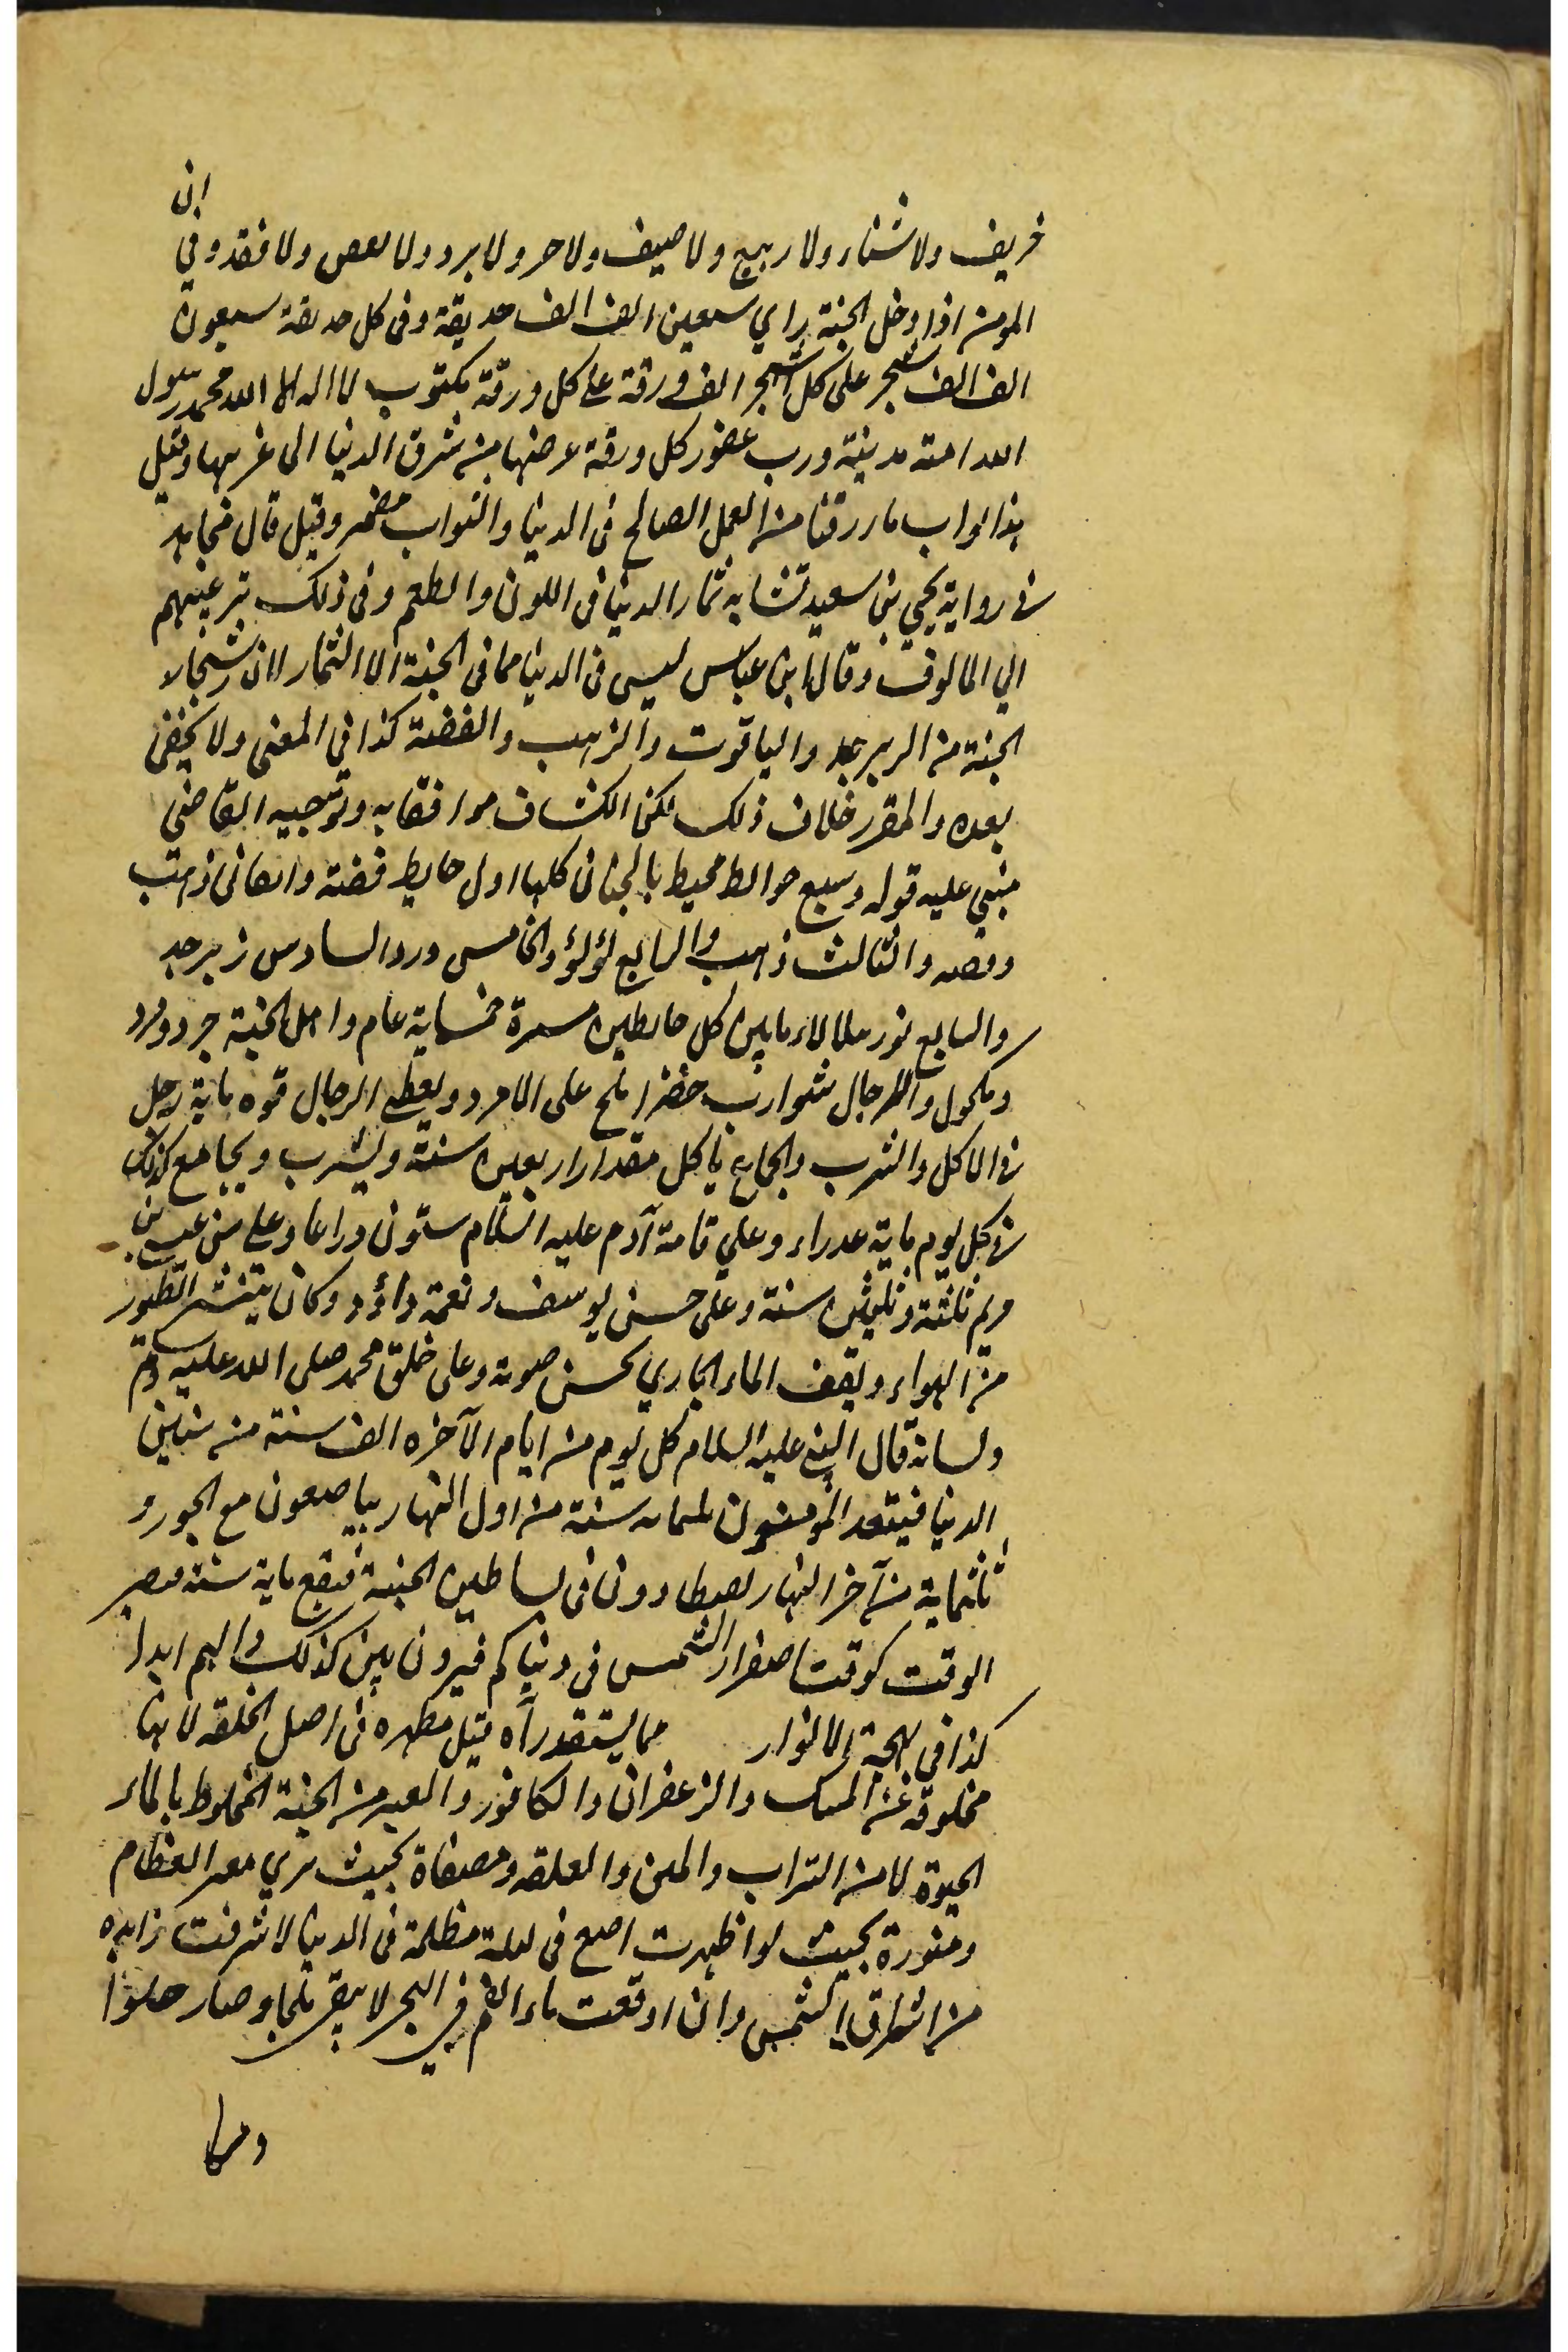 ان
خريف ولا شتاء ولا ربيع ولا صيف ولا حر ولا برد ولا نقص ولا فقد وفي
المومن اذا دخل الجنة راي سبعين الف الف حديقة وفي كل حديقة سبعون
الف الف شجر على كل شجر الف ورقة على كل ورقة مكتوب لا اله الا الله محمد رسول
الله امة مدينة ورب غفور كل ورقة عرضها من شرق الدنيا الى غربها وقيل
هذا ثواب ما رزقنا من العمل الصالح في الدنيا والثواب مضمر وقيل قال مجاهد
في رواية يحيي بن سعيد تشابه ثمار الدنيا في اللون والطعم وفي ذلك ترغيبهم
الي المالوف وقال ابن عباس ليس في الدنيا مما في الجنة الا الثمار لان اشجار
الجنة من الزبرجد والياقوت والذهب والفضة كذا في المغني ولا يخفى
بعده والمقرر خلاف ذلك لكن الكشاف موافقا به وتوجيه القاضي
مبني عليه قوله وسبع حوائط محيط بالجنان كلها اول حايط فضة والثاني ذهب
وفضه والثالث ذهب والرابع لؤلؤ والخامس در والسادس زبرجد
والسابع نور يتلالاء ما بين كل حايطين مسيرة خمسماية عام واهل الجنة جرد ومرد
ومكحول وللرجال شوارب خضر املح على الامرد ويعطى الرجال قوه ماية رجل
في الاكل والشرب والجماع ياكل مقدار اربعين سنة ويشرب ويجامع كذلك
في كل يوم ماية عذراء وعلي قامة آدم عليه السلام ستون ذراعا وعلى سن عيسى بن
مريم ثلثة وثلثين سنة وعلى حسن يوسف ونغمة داؤد وكان الطيور
من الهواء ويقف الماء الجاري بحسن صوته وعلى خلق محمد صلى الله عليه وسلم
ولسانه قال النبي عليه السلام كل يوم من ايام الآخره الف سنة من سنين
الدنيا فيقعد المؤمنون ثلثمايه سنة من اول النهار يباضعون مع الحور و
ثلثماية من آخر النهار يصطادون في بساطين الجنة فيبقى ماية سنة فيصير
الوقت كوقت اصفرار الشمس في دنياكم فيرون بين كذلك دايم ابدا
كذا في بهجة الانوار مما يستقدراه قيل مطهره في اصل الخلقه لانها
مخلوقه من المسك والزعفران والكافور والعنبر من الجنة المخلوط بالماء
الحيوة لا من التراب والمني والعلقه ومصفاة بحيث يري العظام
ومنورة بحيث لو اظهرت اصبع في ليلة مظلمة في الدنيا لا شرقت زايده
من اشراق الشمس وان اوقعت ماء الفم في البحر لا يبقى ملحا وصار حلوا